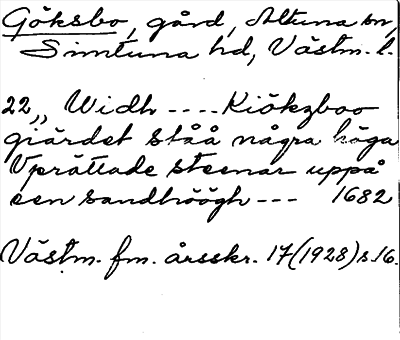 Göksbo, gård, Altuna sn,
Simtuna hd, Västm. l.
22,, Widh ---- Kiökzboo
giärdet ståå några höga
Vprättade steenar uppå
een sandhöögh --- 1682
Västm. fm. årsskr. 17(1928)s.16.